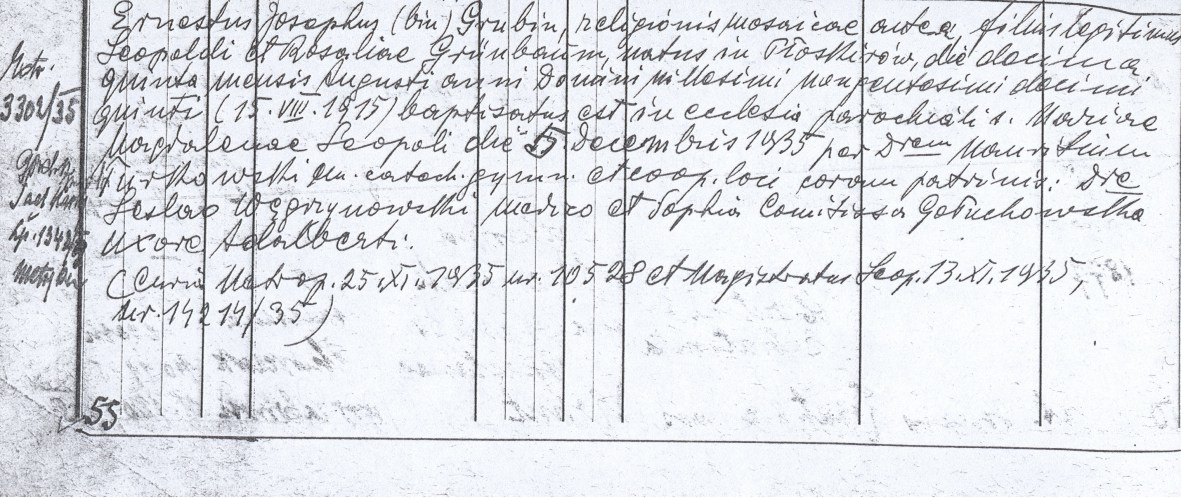 Ernestus Josephus (bin) Grubin, religionis mosaicae antea, filius legitimus
Leopoldi et Rosaliae Grünbaum, natus in Płoskirów, die decima
quinta mensis Augusti anni Domini millesimi nongentesimi decimi
quinti (15.VIII.1915) baptisatus est in ecclesia parochiali s. Mariae
Magdalenae Leopoli die 5 Decembris 1935 per Drem Mauritium
Turkowski em. catech. gymn. et coop. loci coram patrinis: Dre
Leslao Węgrzynowski medico et Sophia Comitissa Gołuchowska
uxore Adalberti.
(Curia Metrop. 25.XI.1935 nr. 10528 et Magistratus Leop. 13.XI.1935,
nr. 14214/35)
Metr.
3302/35
55